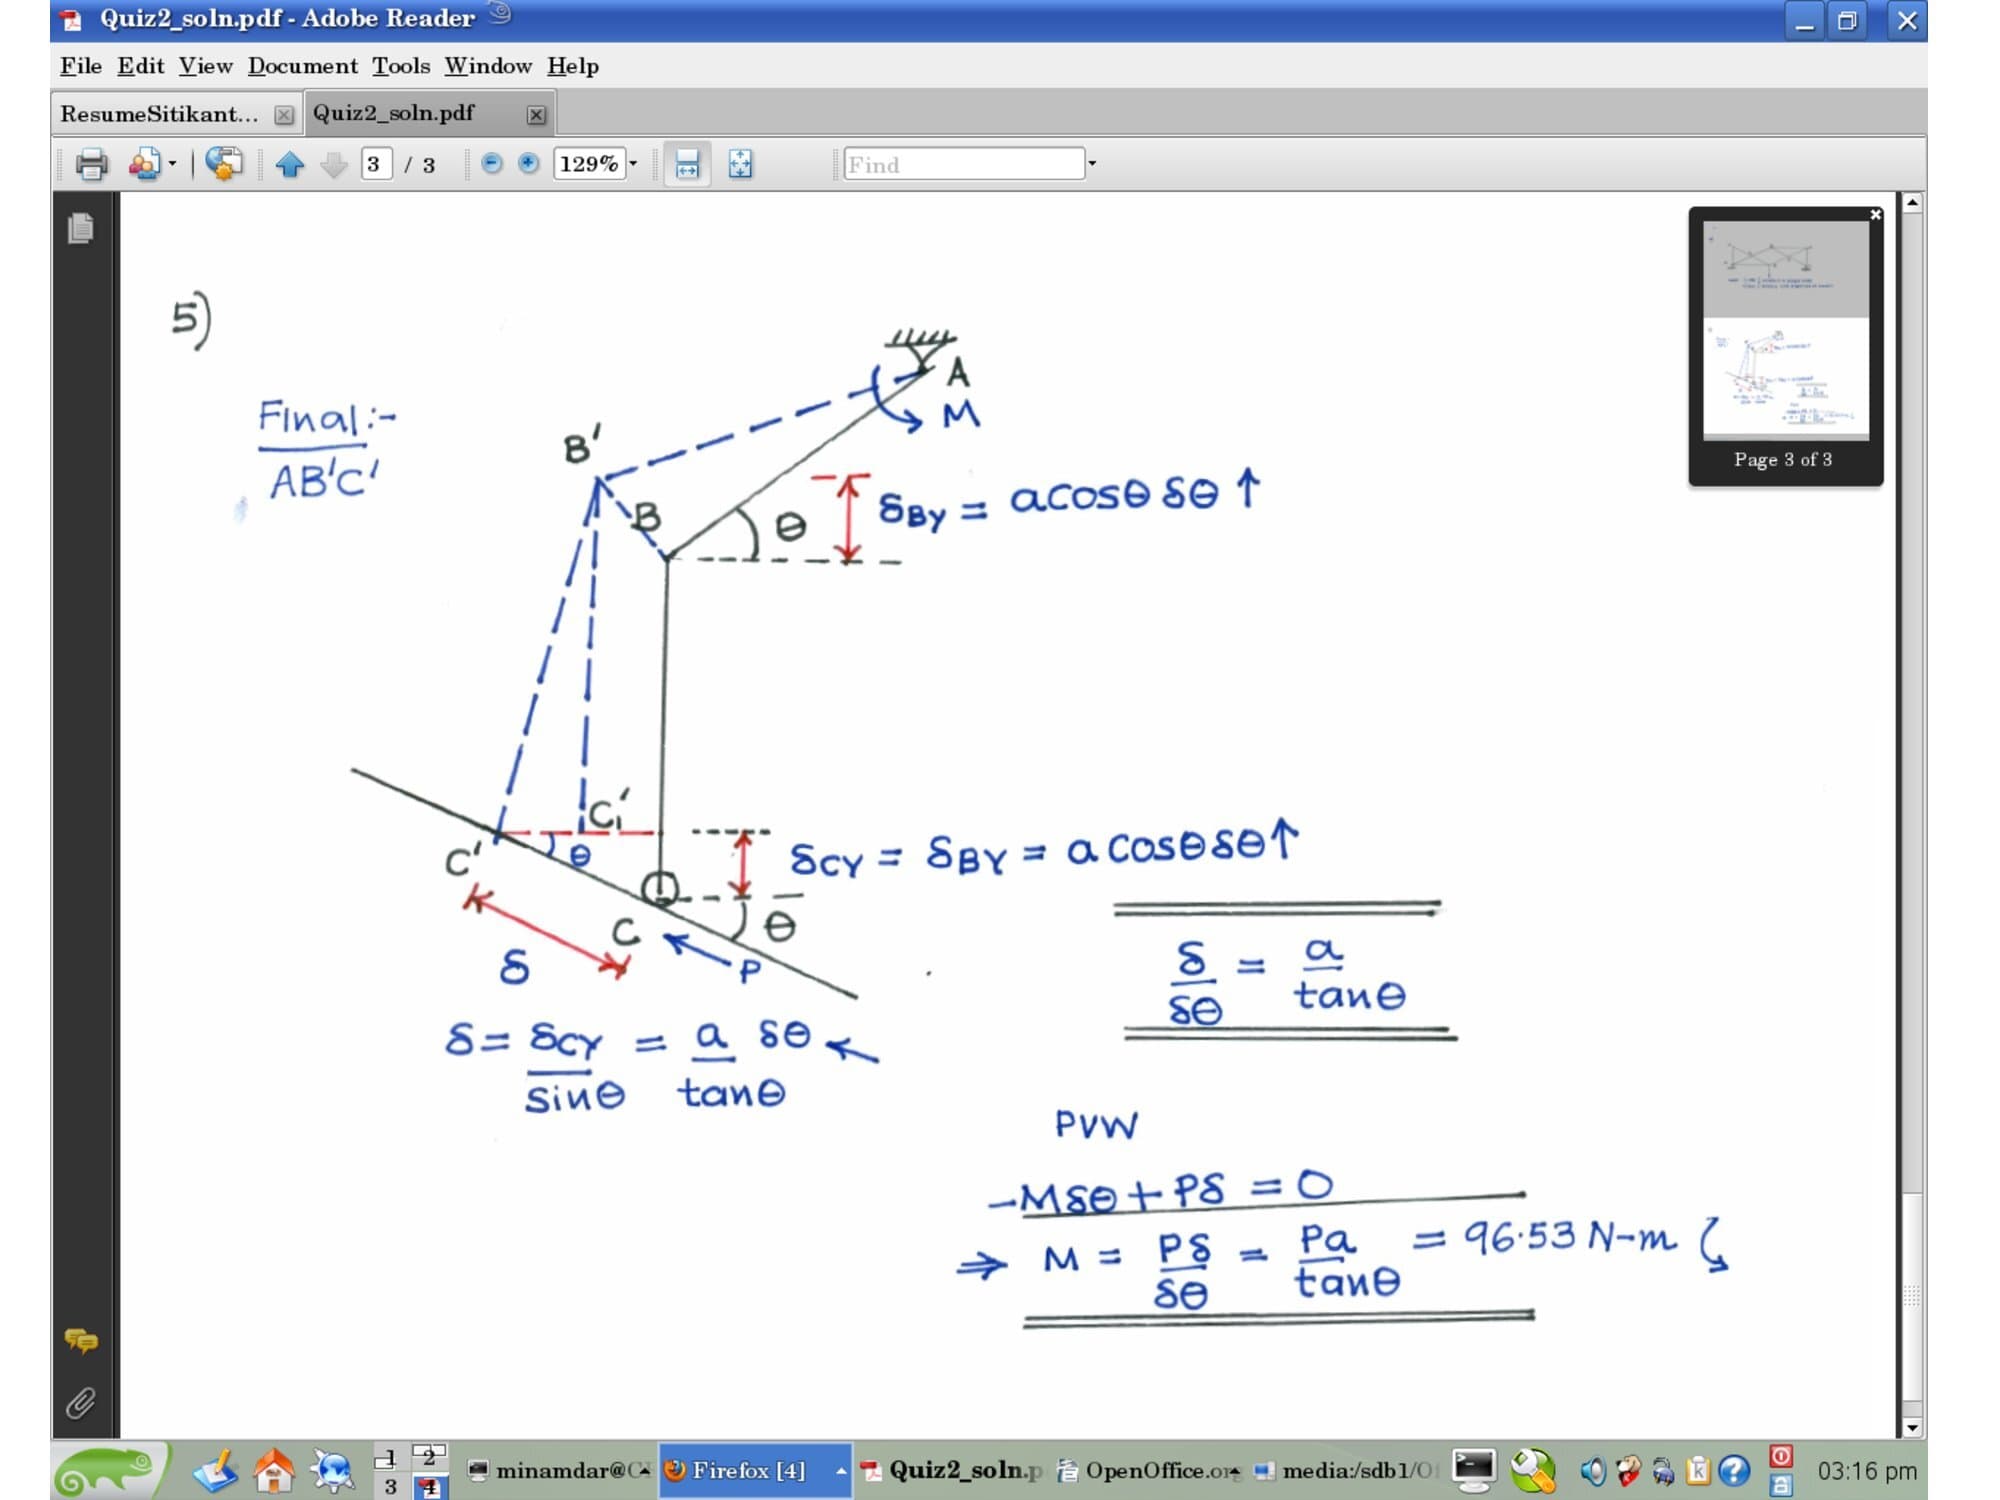 Quiz2_soln.pdf - Adobe Reader
File Edit View Document Tools Window Help
ResumeSitikant... Quiz2_soln.pdf
3 / 3 129% Find
5)
Final:-
AB'C'
A
M
B'
B
θ
δBY = a cosθ δθ ↑
C₁'
C'
θ
δCY = δBY = a cosθ δθ ↑
θ
C
P
δ
δ = δCY / sinθ = a / tanθ δθ ←
δ / δθ = a / tanθ
PVW
-Mδθ + Pδ = 0
⇒ M = Pδ / δθ = Pa / tanθ = 96.53 N-m
Page 3 of 3
1 2
3 4
minamdar@ Firefox [4] Quiz2_soln.p OpenOffice.or media:/sdb1/O 03:16 pm